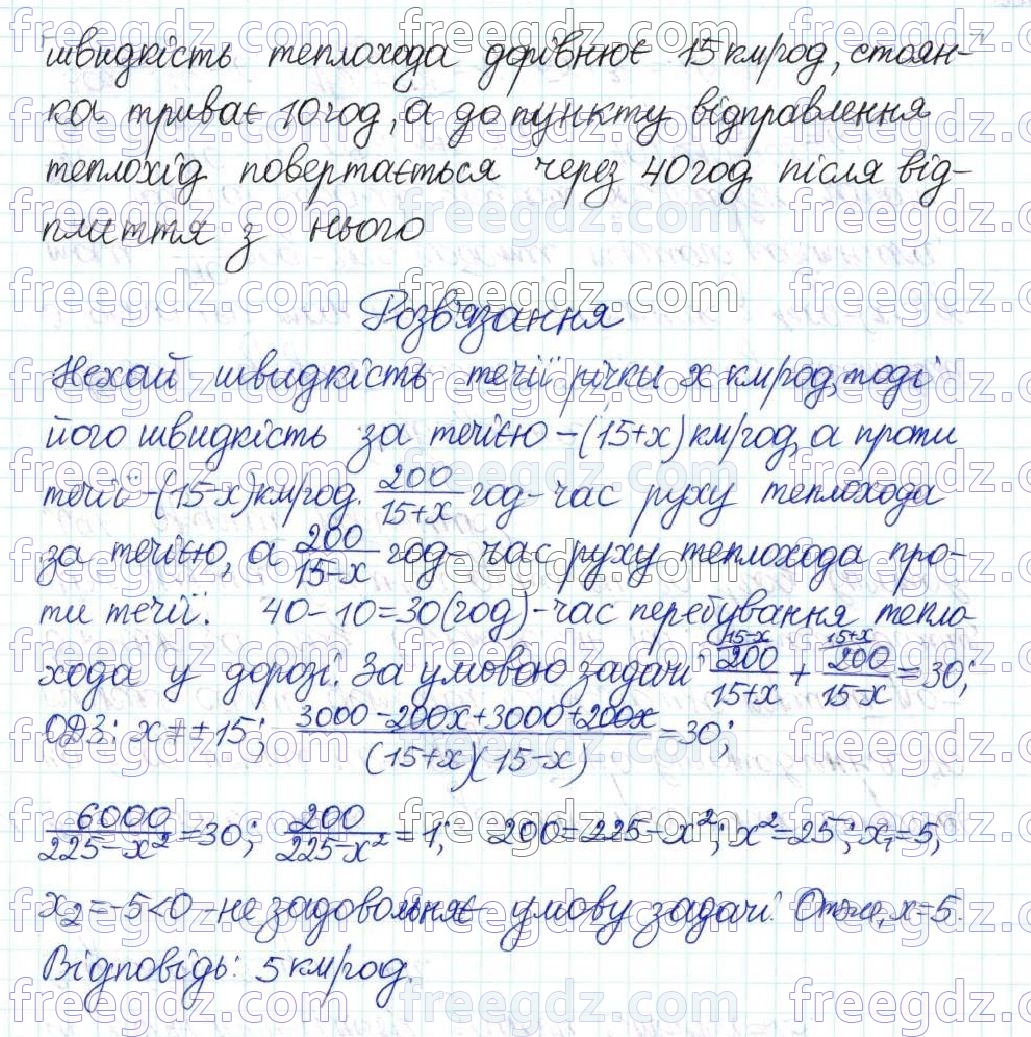 швидкість теплохода дорівнює 15 км/год, стоян-
ка триває 10 год, а до пункту відправлення
теплохід повертається через 40 год після від-
плиття з нього
Розв'язання
Нехай швидкість течії річки x км/год, тоді
його швидкість за течією – (15+x) км/год, а проти
течії – (15-x) км/год. 200/(15+x) год – час руху теплохода
за течією, а 200/(15-x) год – час руху теплохода про-
ти течії. 40-10=30 (год) – час перебування тепло-
хода у дорозі. За умовою задачі 15-x 200/(15+x) + 15+x 200/(15-x) = 30;
ОДЗ: x ≠ ±15; (3000-200x+3000+200x)/((15+x)(15-x)) = 30;
6000/(225-x²) = 30; 200/(225-x²) = 1; 200=225-x²; x²=25; x₁=5,
x₂=-5<0 – не задовольняє умову задачі. Отже, x=5.
Відповідь: 5 км/год.
freegdz.com